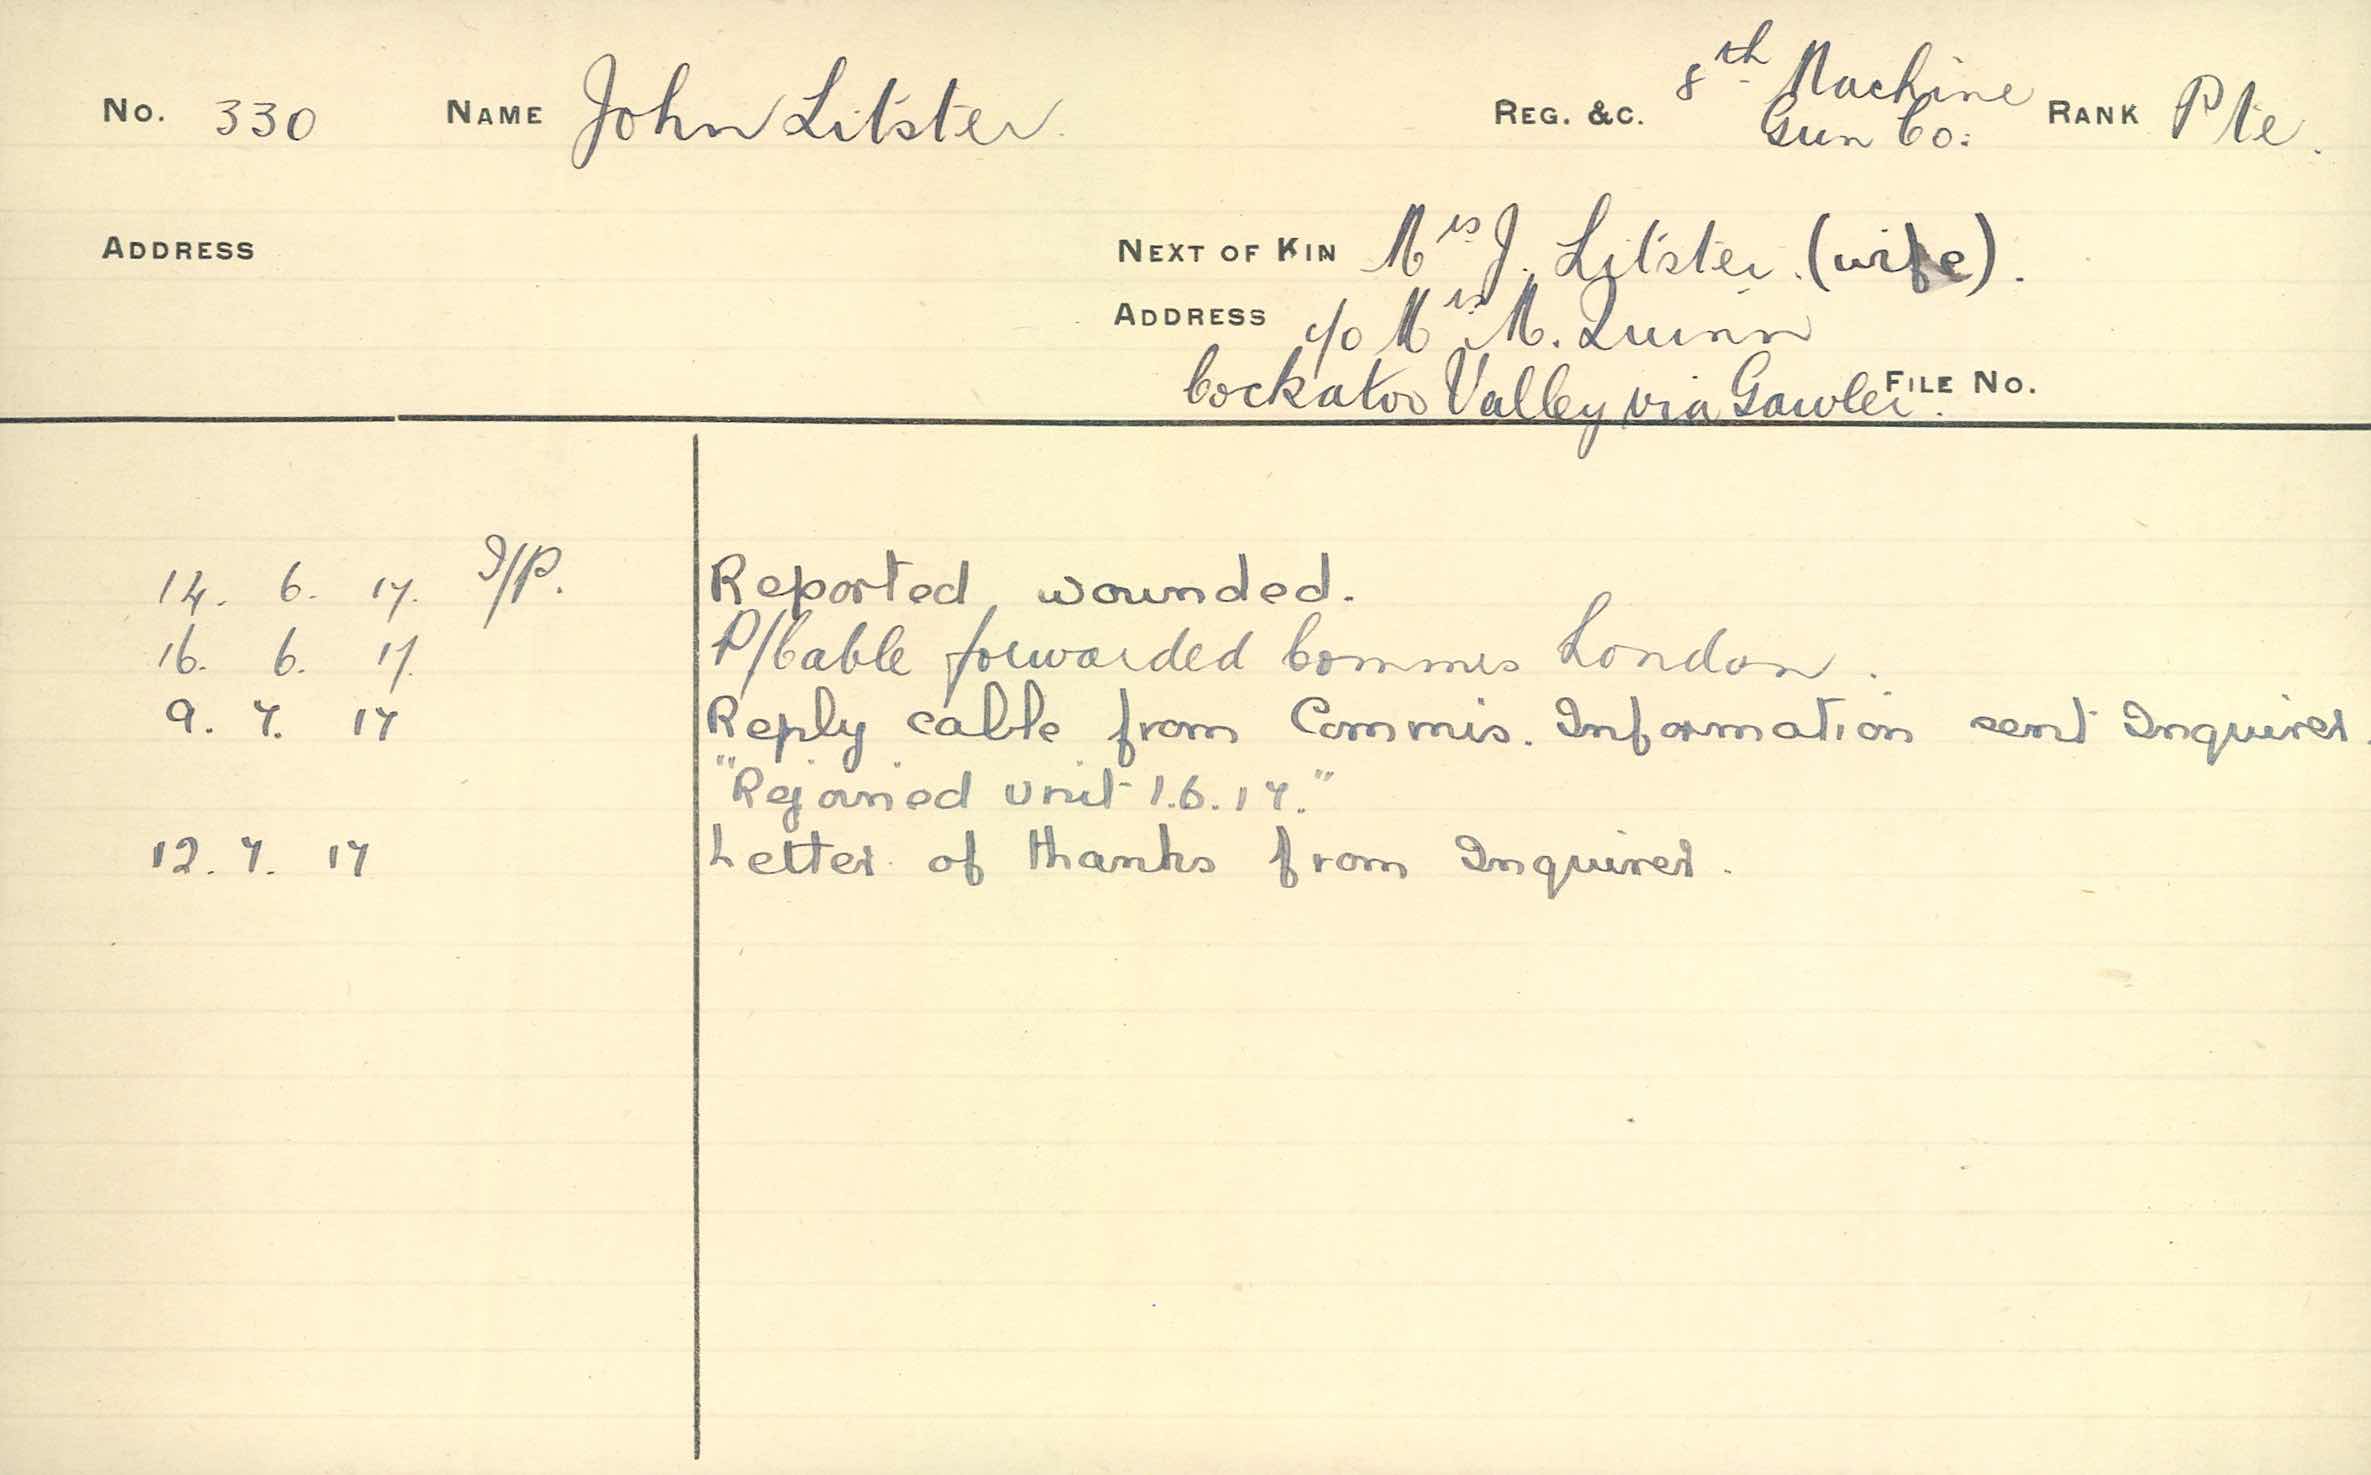 No. 330 NAME John Litster. REG. &C. 8th Machine Gun Co: RANK Pte.
ADDRESS
NEXT OF KIN Mrs J. Litster. (wife).
ADDRESS c/o Mrs M. Quinn
Cockatoo Valley via Gawler. FILE No.
14. 6. 17. I/P. Reported wounded.
16. 6. 17. P/Cable forwarded Commis London.
9. 7. 17 Reply cable from Commis. Information sent Inquirer.
"Rejoined Unit 1.6.17."
12. 7. 17 Letter of thanks from Inquirer.